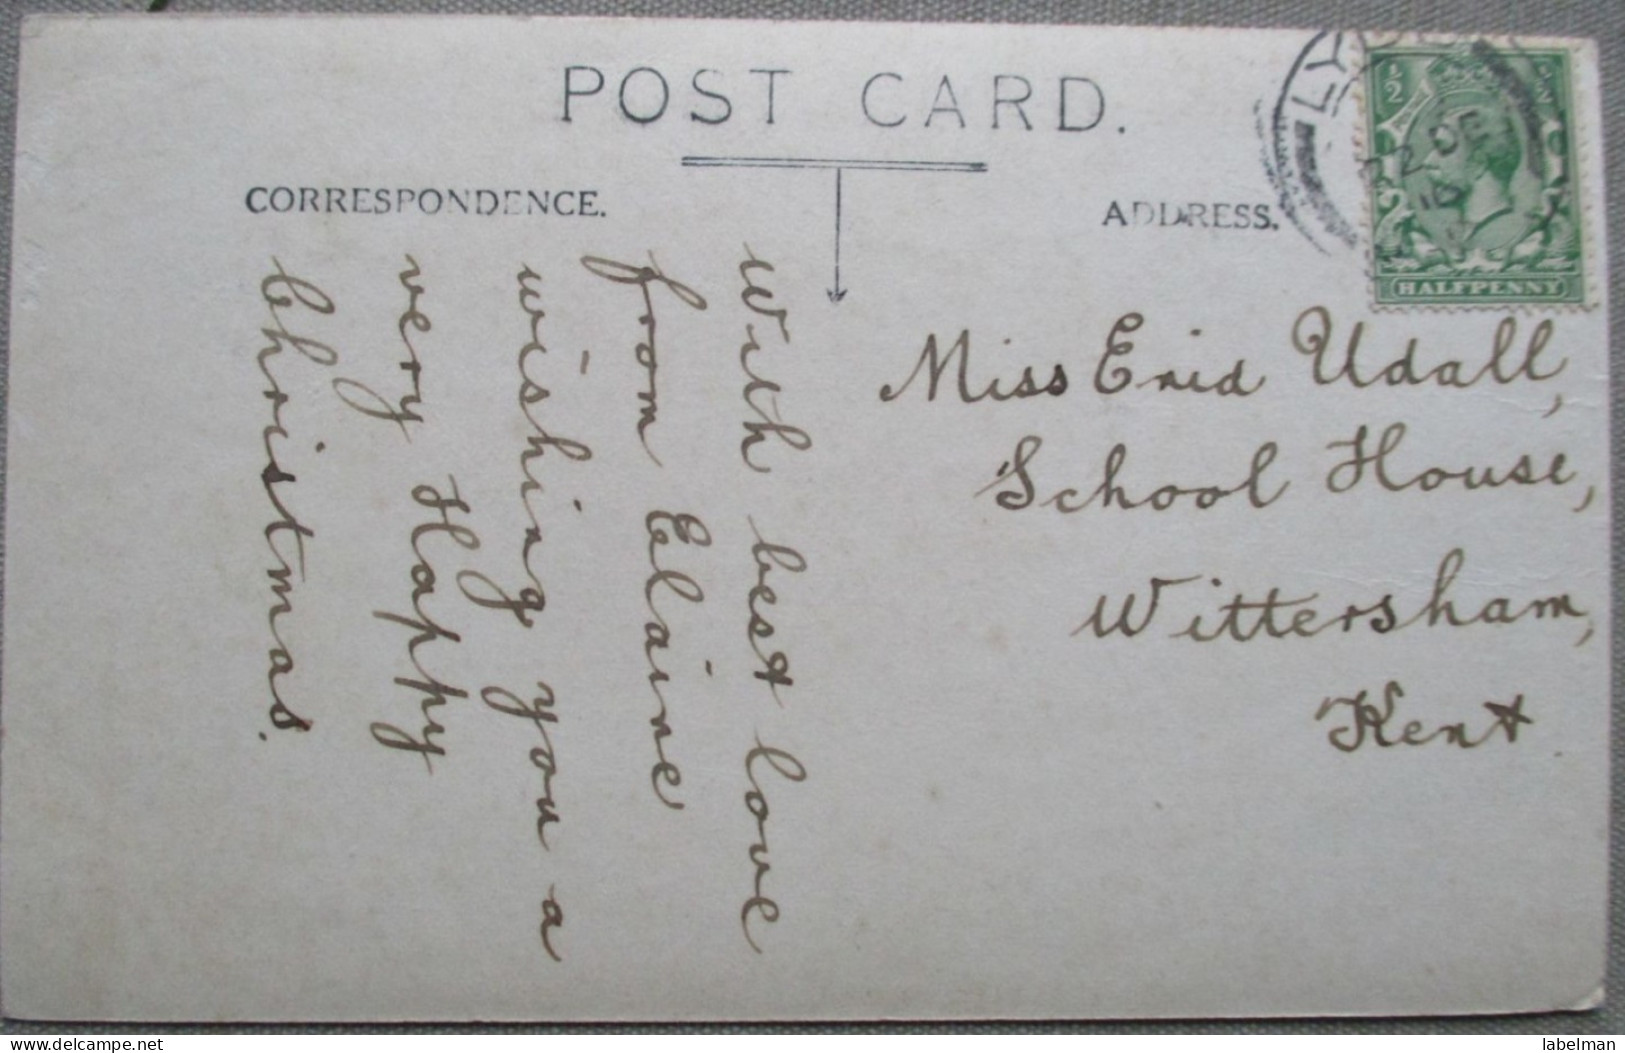 POST CARD.
CORRESPONDENCE.
ADDRESS.
1/2
HALFPENNY
22 DE
With best love
from Elaine
wishing you a
very Happy
Christmas.
Miss Enid Udall,
School House,
Wittersham,
Kent
www.delcampe.net
labelman